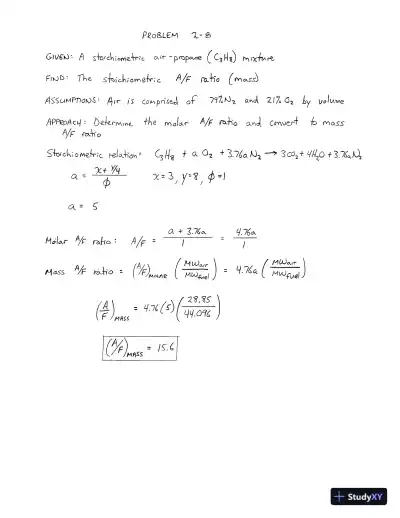 PROBLEM 2-8
GIVEN: A stoichiometric air-propane (C₃H₈) mixture
FIND: The stoichiometric A/F ratio (mass)
ASSUMPTIONS: Air is comprised of 79% N₂ and 21% O₂ by volume
APPROACH: Determine the molar A/F ratio and convert to mass
A/F ratio
Stoichiometric relation: C₃H₈ + a O₂ + 3.76a N₂ → 3CO₂ + 4H₂O + 3.76a N₂
a = (x + y/4) / ϕ x = 3, y = 8, ϕ = 1
a = 5
Molar A/F ratio: A/F = (a + 3.76a) / 1 = 4.76a / 1
Mass A/F ratio = (A/F)MOLAR (MWair / MWfuel) = 4.76a (MWair / MWfuel)
(A/F)MASS = 4.76(5) (28.85 / 44.096)
(A/F)MASS = 15.6
StudyXY